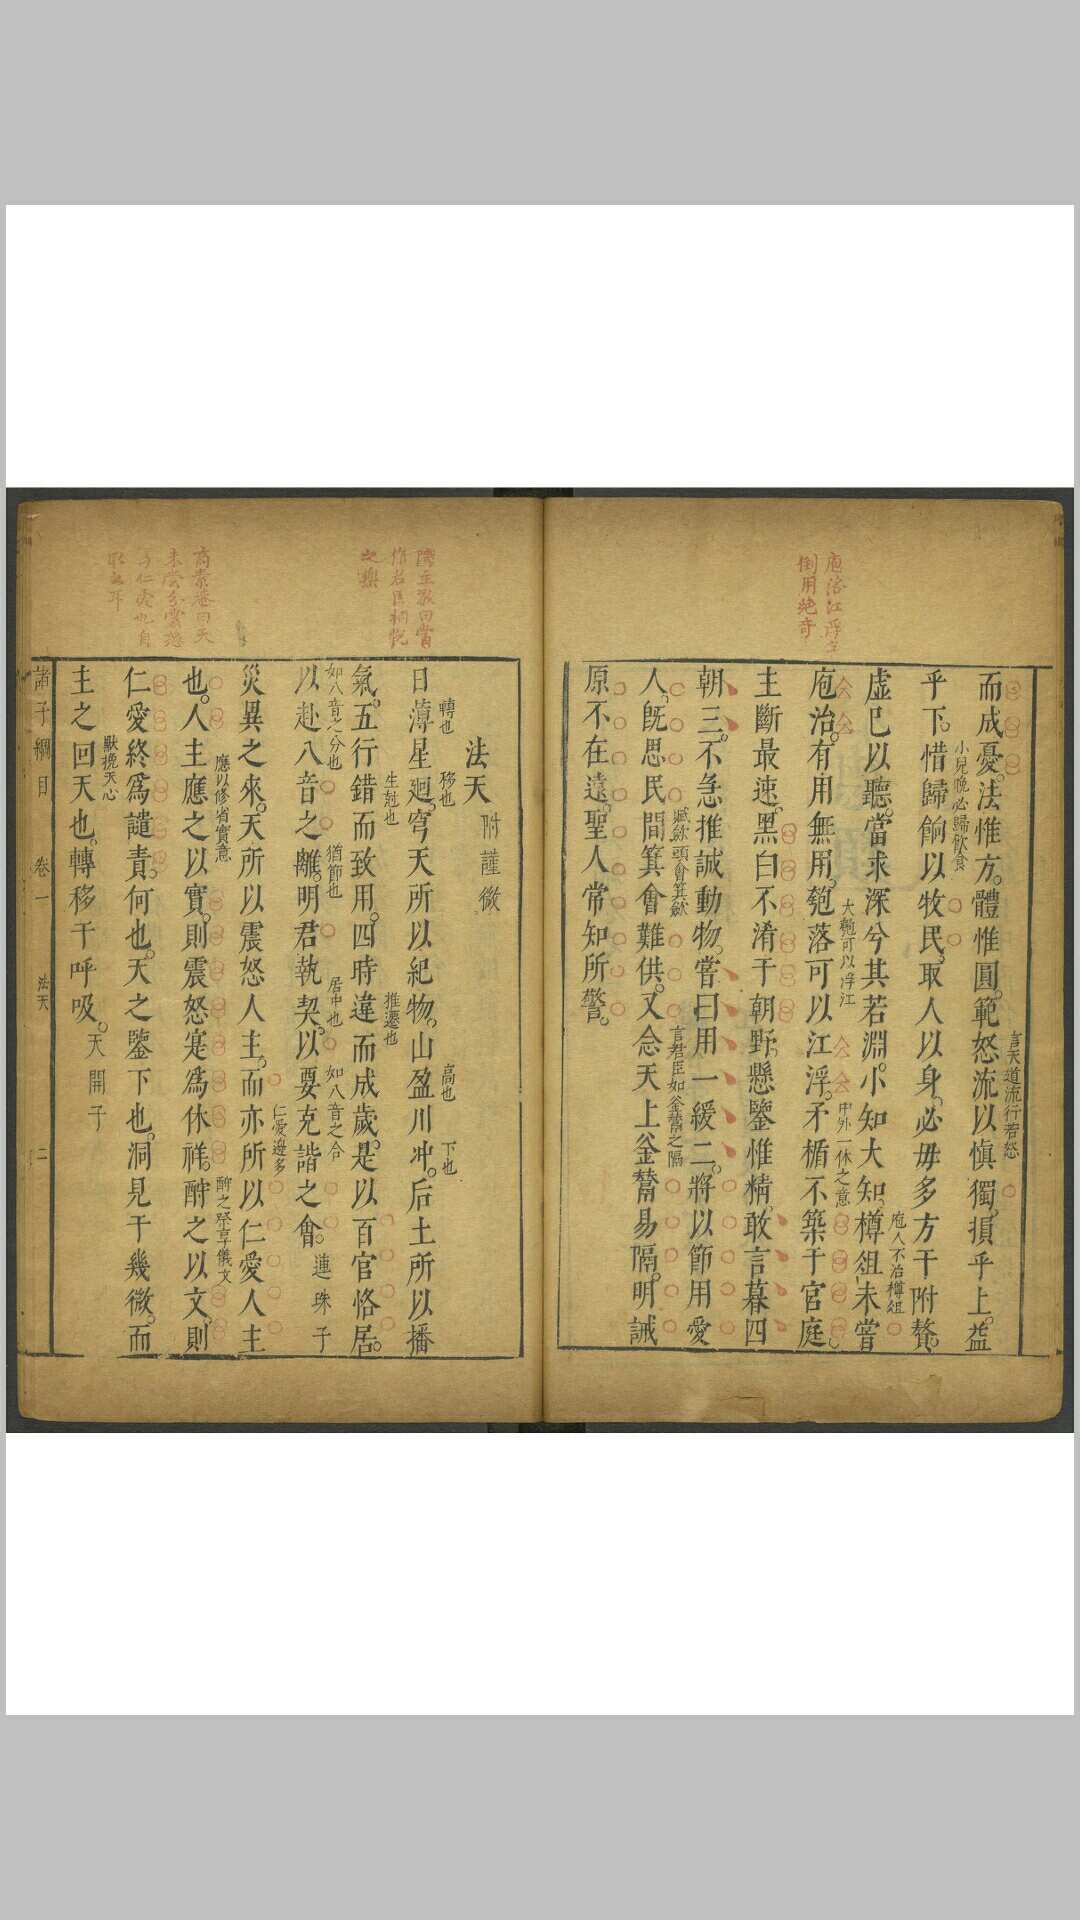 庖治江浮字
倒用絶奇
而成憂。法惟方。體惟圓。範怒流以愼獨。損乎上。益
言天道流行若怒
乎下。惜歸餉以牧民。取人以身。必毋多方干附贅。
小兒晚必歸飲食
虛巳以聽。當求深兮其若淵。小知大知。樽俎未嘗
庖人不治樽俎
庖治。有用無用。匏落可以江浮。矛楯不築于宮庭。
大匏可以浮江
中外一体之意
主斷最速。黑白不淆于朝野。懸鑒惟精。敢言暮四
朝三。不急推誠動物。嘗曰用一緩二。將以節用愛
人。旣思民間箕會難供。又念天上釜鬵易隔。明誡
賦歛頭會箕歛
言君臣如釜鬵之隔
原不在遠。聖人常知所警。
法天 附謹微
日薄星廻。穹天所以紀物。山盈川冲。后土所以播
轉也
移也
高也
下也
氣。五行錯而致用。四時違而成歲。是以百官恪居。
生尅也
推遷也
以赴八音之離。明君執契。以要克諧之會。連珠子
如八音之分也
猶節也
居中也
如八音之合
災異之來。天所以震怒人主。而亦所以仁愛人主
仁愛邊多
也。人主應之以實。則震怒寔爲休祥。酧之以文。則
應以修省實意
酧之 享儀文
仁愛終爲譴責。何也。天之鑒下也。洞見于幾微。而
主之回天也。轉移于呼吸。天開子
默挽天心
諸子綱目 卷一 法天 二